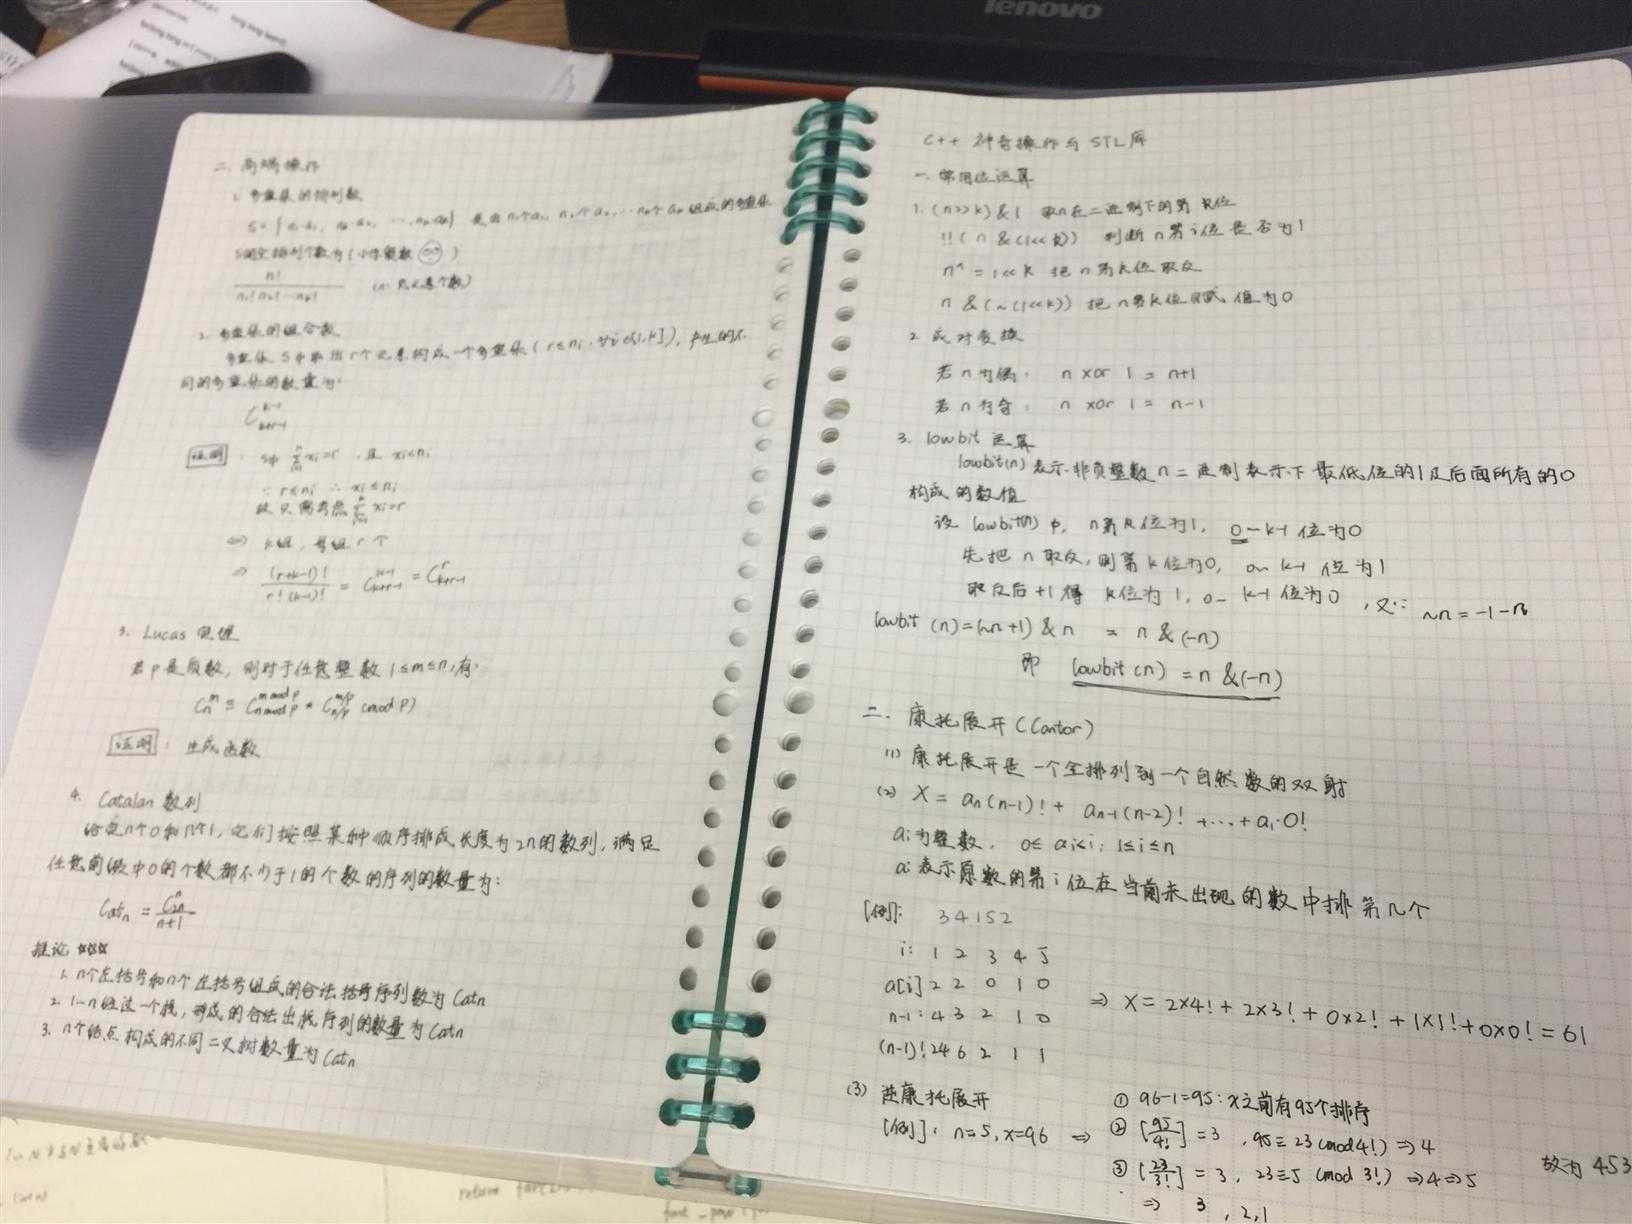 lenovo
二. 高端操作
1. 多重集的排列数
S = { n₁·a₁, n₂·a₂, …, nₖ·aₖ } 是由 n₁个a₁, n₂个a₂, … nₖ个aₖ 组成的多重集
S的全排列个数为
n! / n₁! n₂! … nₖ!
2. 多重集的组合数
多重集 S 中取出 r 个元素构成一个多重集 (r ≤ nᵢ, ∀i∈[1,k]), 产生的不
同的多重集的数量为:
C_{k+r-1}^{k-1}
证明 :
∵ r ≤ nᵢ ∴ xᵢ ≤ nᵢ
故只需考虑 Σxᵢ=r
⇒ (r+k-1)! / r!(k-1)! = C_{k+r-1}^{k-1} = C_{k+r-1}^{r}
3. Lucas 定理
若 p 是质数, 则对于任意整数 1≤m≤n, 有:
C_n^m ≡ C_{n mod p}^{m mod p} * C_{n/p}^{m/p} (mod P)
证明 : 生成函数
4. Catalan 数列
给定n个0和n个1, 它们按照某种顺序排成长度为2n的数列, 满足
任意前缀中0的个数都不少于1的个数的序列的数量为:
Catₙ = C_{2n}^n / n+1
推论
1. n个左括号和n个左括号组成的合法括号序列数为 Catₙ
2. 1~n 经过一个栈, 形成的合法出栈序列的数量为 Catₙ
3. n个结点构成的不同二叉树数量为 Catₙ
C++ 神奇操作与 STL库
一. 常用位运算
1. (n>>k)&1 取n在二进制下的第 k位
!!(n &(1<<k)) 判断 n第i位是否为1
n^=1<<k 把 n第k位取反
n &(~(1<<k)) 把n第k位赋值为0
2. 成对变换
若 n为偶: n xor 1 = n+1
若 n为奇: n xor 1 = n-1
3. lowbit 运算
lowbit(n) 表示非负整数 n 二进制表示下最低位的1及后面所有的0
构成的数值
设 lowbit(n) 中, n第k位为1, 0~k-1 位为0
先把 n 取反, 则第 k 位为0, 0~ k-1 位为1
取反后 +1 得 k位为1, 0~ k-1 位为0 , 又∵ ~n = -1-n
lowbit (n)=(~n+1) & n = n &(-n)
即 lowbit (n) = n &(-n)
二. 康托展开 (Cantor)
(1) 康托展开是一个全排列到一个自然数的双射
(2) X = aₙ(n-1)! + aₙ₋₁(n-2)! +…+ a₁·0!
aᵢ为整数, 0≤ aᵢ<i, 1≤i≤n
aᵢ 表示原数的第 i 位在当前未出现的数中排第几个
[例]: 34152
i: 1 2 3 4 5
a[i] 2 2 0 1 0
n-1: 4 3 2 1 0
(n-1)! 24 6 2 1 1
⇒ X = 2×4! + 2×3! + 0×2! + 1×1! + 0×0! = 61
(3) 逆康托展开
[例]: n=5, x=96 ⇒
① 96-1=95: x之前有95个排序
② [95/4!] = 3 , 95 ≡ 23 (mod 4!) ⇒ 4
③ [23/3!] = 3 , 23 ≡ 5 (mod 3!) ⇒ 4 ⇒ 5
⇒ 3 , 2, 1
故为 453